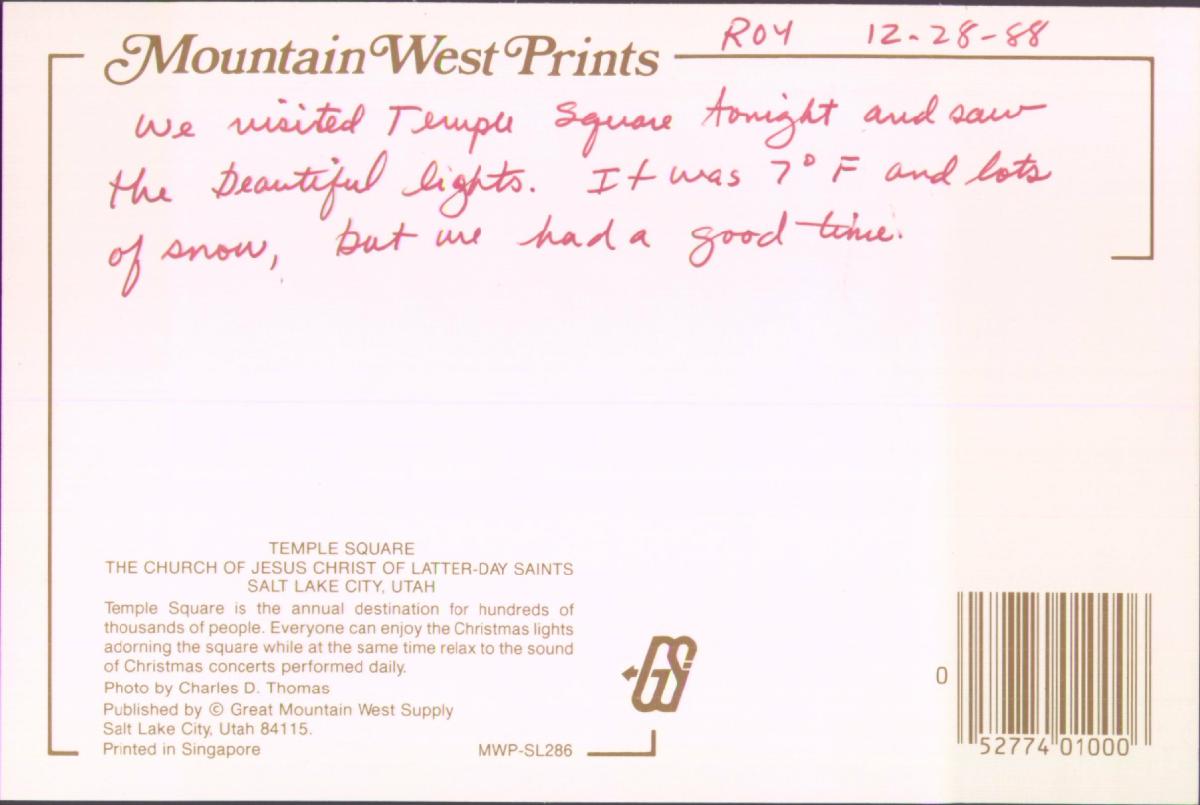 Mountain West Prints
ROY 12-28-88
We visited Temple Square tonight and saw
the beautiful lights. It was 7° F and lots
of snow, but we had a good time.
TEMPLE SQUARE
THE CHURCH OF JESUS CHRIST OF LATTER-DAY SAINTS
SALT LAKE CITY, UTAH
Temple Square is the annual destination for hundreds of
thousands of people. Everyone can enjoy the Christmas lights
adorning the square while at the same time relax to the sound
of Christmas concerts performed daily.
Photo by Charles D. Thomas
Published by © Great Mountain West Supply
Salt Lake City, Utah 84115.
Printed in Singapore MWP-SL286
0 52774 01000